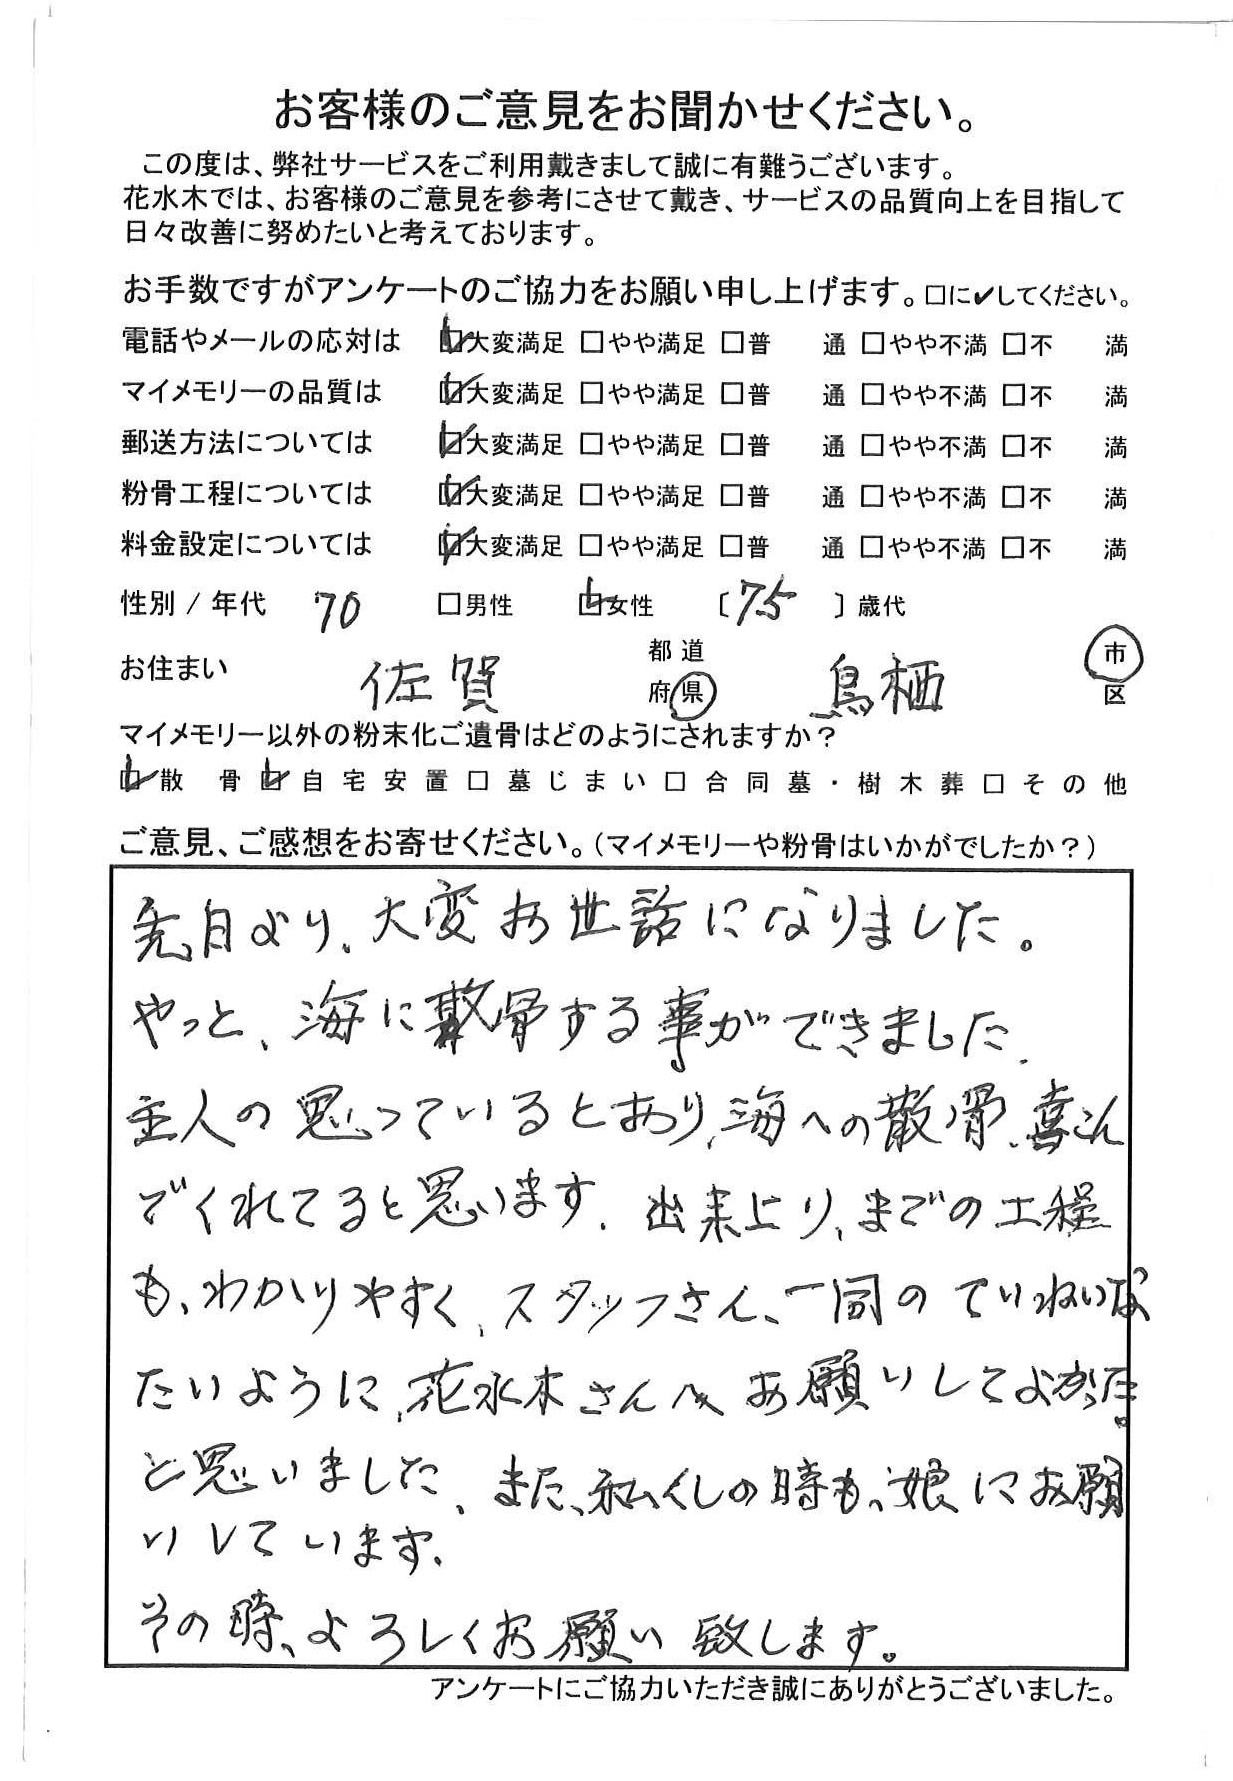 お客様のご意見をお聞かせください。
この度は、弊社サービスをご利用戴きまして誠に有難うございます。
花水木では、お客様のご意見を参考にさせて戴き、サービスの品質向上を目指して
日々改善に努めたいと考えております。
お手数ですがアンケートのご協力をお願い申し上げます。□に✔してください。
電話やメールの応対は ☑大変満足 □やや満足 □普 通 □やや不満 □不 満
マイメモリーの品質は ☑大変満足 □やや満足 □普 通 □やや不満 □不 満
郵送方法については ☑大変満足 □やや満足 □普 通 □やや不満 □不 満
粉骨工程については ☑大変満足 □やや満足 □普 通 □やや不満 □不 満
料金設定については ☑大変満足 □やや満足 □普 通 □やや不満 □不 満
性別 / 年代 70 □男性 ☑女性 〔75〕歳代
お住まい 佐賀 都道府県 鳥栖 市区
マイメモリー以外の粉末化ご遺骨はどのようにされますか？
☑散 骨 ☑自宅安置 □墓じまい □合同墓・樹木葬 □その他
ご意見、ご感想をお寄せください。（マイメモリーや粉骨はいかがでしたか？）
先月より、大変お世話になりました。
やっと、海に散骨する事ができました、
主人の思っているとおり、海への散骨、喜こん
でくれてると思います、出来上り、までの工程
も、わかりやすく、スタッフさん、一同のていねいな
たいように、花水木さんへ お願いしてよかった。
と思いました、また、私くしの時も、娘にお願
いしています、
その時、よろしくお願い致します。
アンケートにご協力いただき誠にありがとうございました。